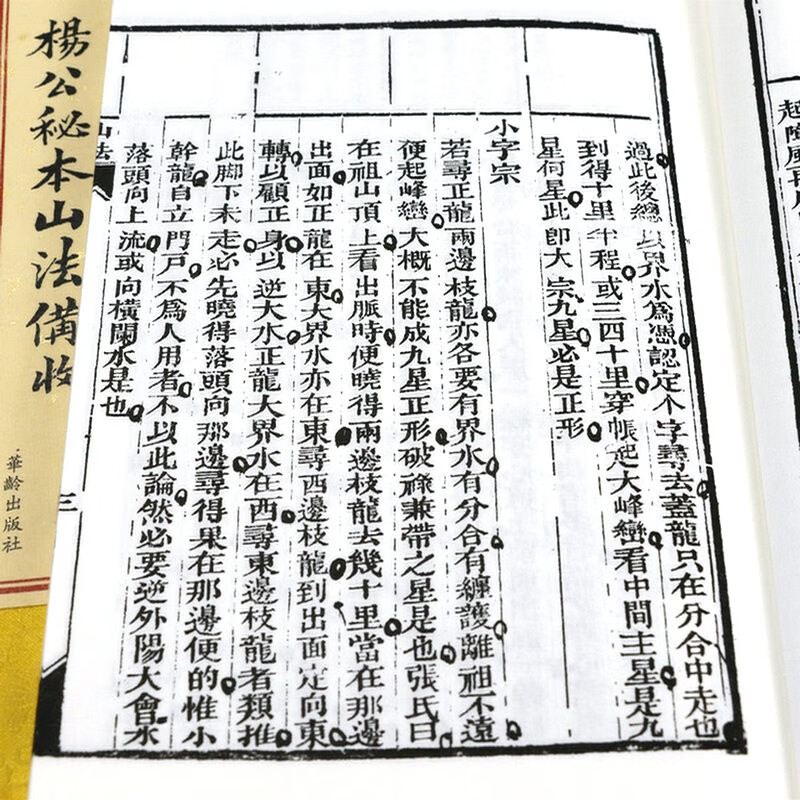 過此後總以界水為憑認定个字尋去蓋龍只在分合中走也
到得十里半程或三四十里穿帳起大峰巒看中間主星是九
星何星此卽大宗九星必是正形
小字宗
若尋正龍兩邊枝龍亦各要有界水有分合有纏護離祖不遠
便起峰巒大概不能成九星正形破祿兼帶之星是也張氏曰
在祖山頂上看出脈時便曉得兩邊枝龍去幾十里當在那邊
出面如正龍在東大界水亦在東尋西邊枝龍到出面定向東
轉以顧正身以逆大水正龍大界水在西尋東邊枝龍者類推
此脚下未走必先曉得落頭向那邊尋得果在那邊便的惟小
幹龍自立門戸不爲人用者不以此論然必要逆外陽大會水
落頭向上流或向橫闌水是也
山法
三
楊公秘本山法備收
·華齡出版社